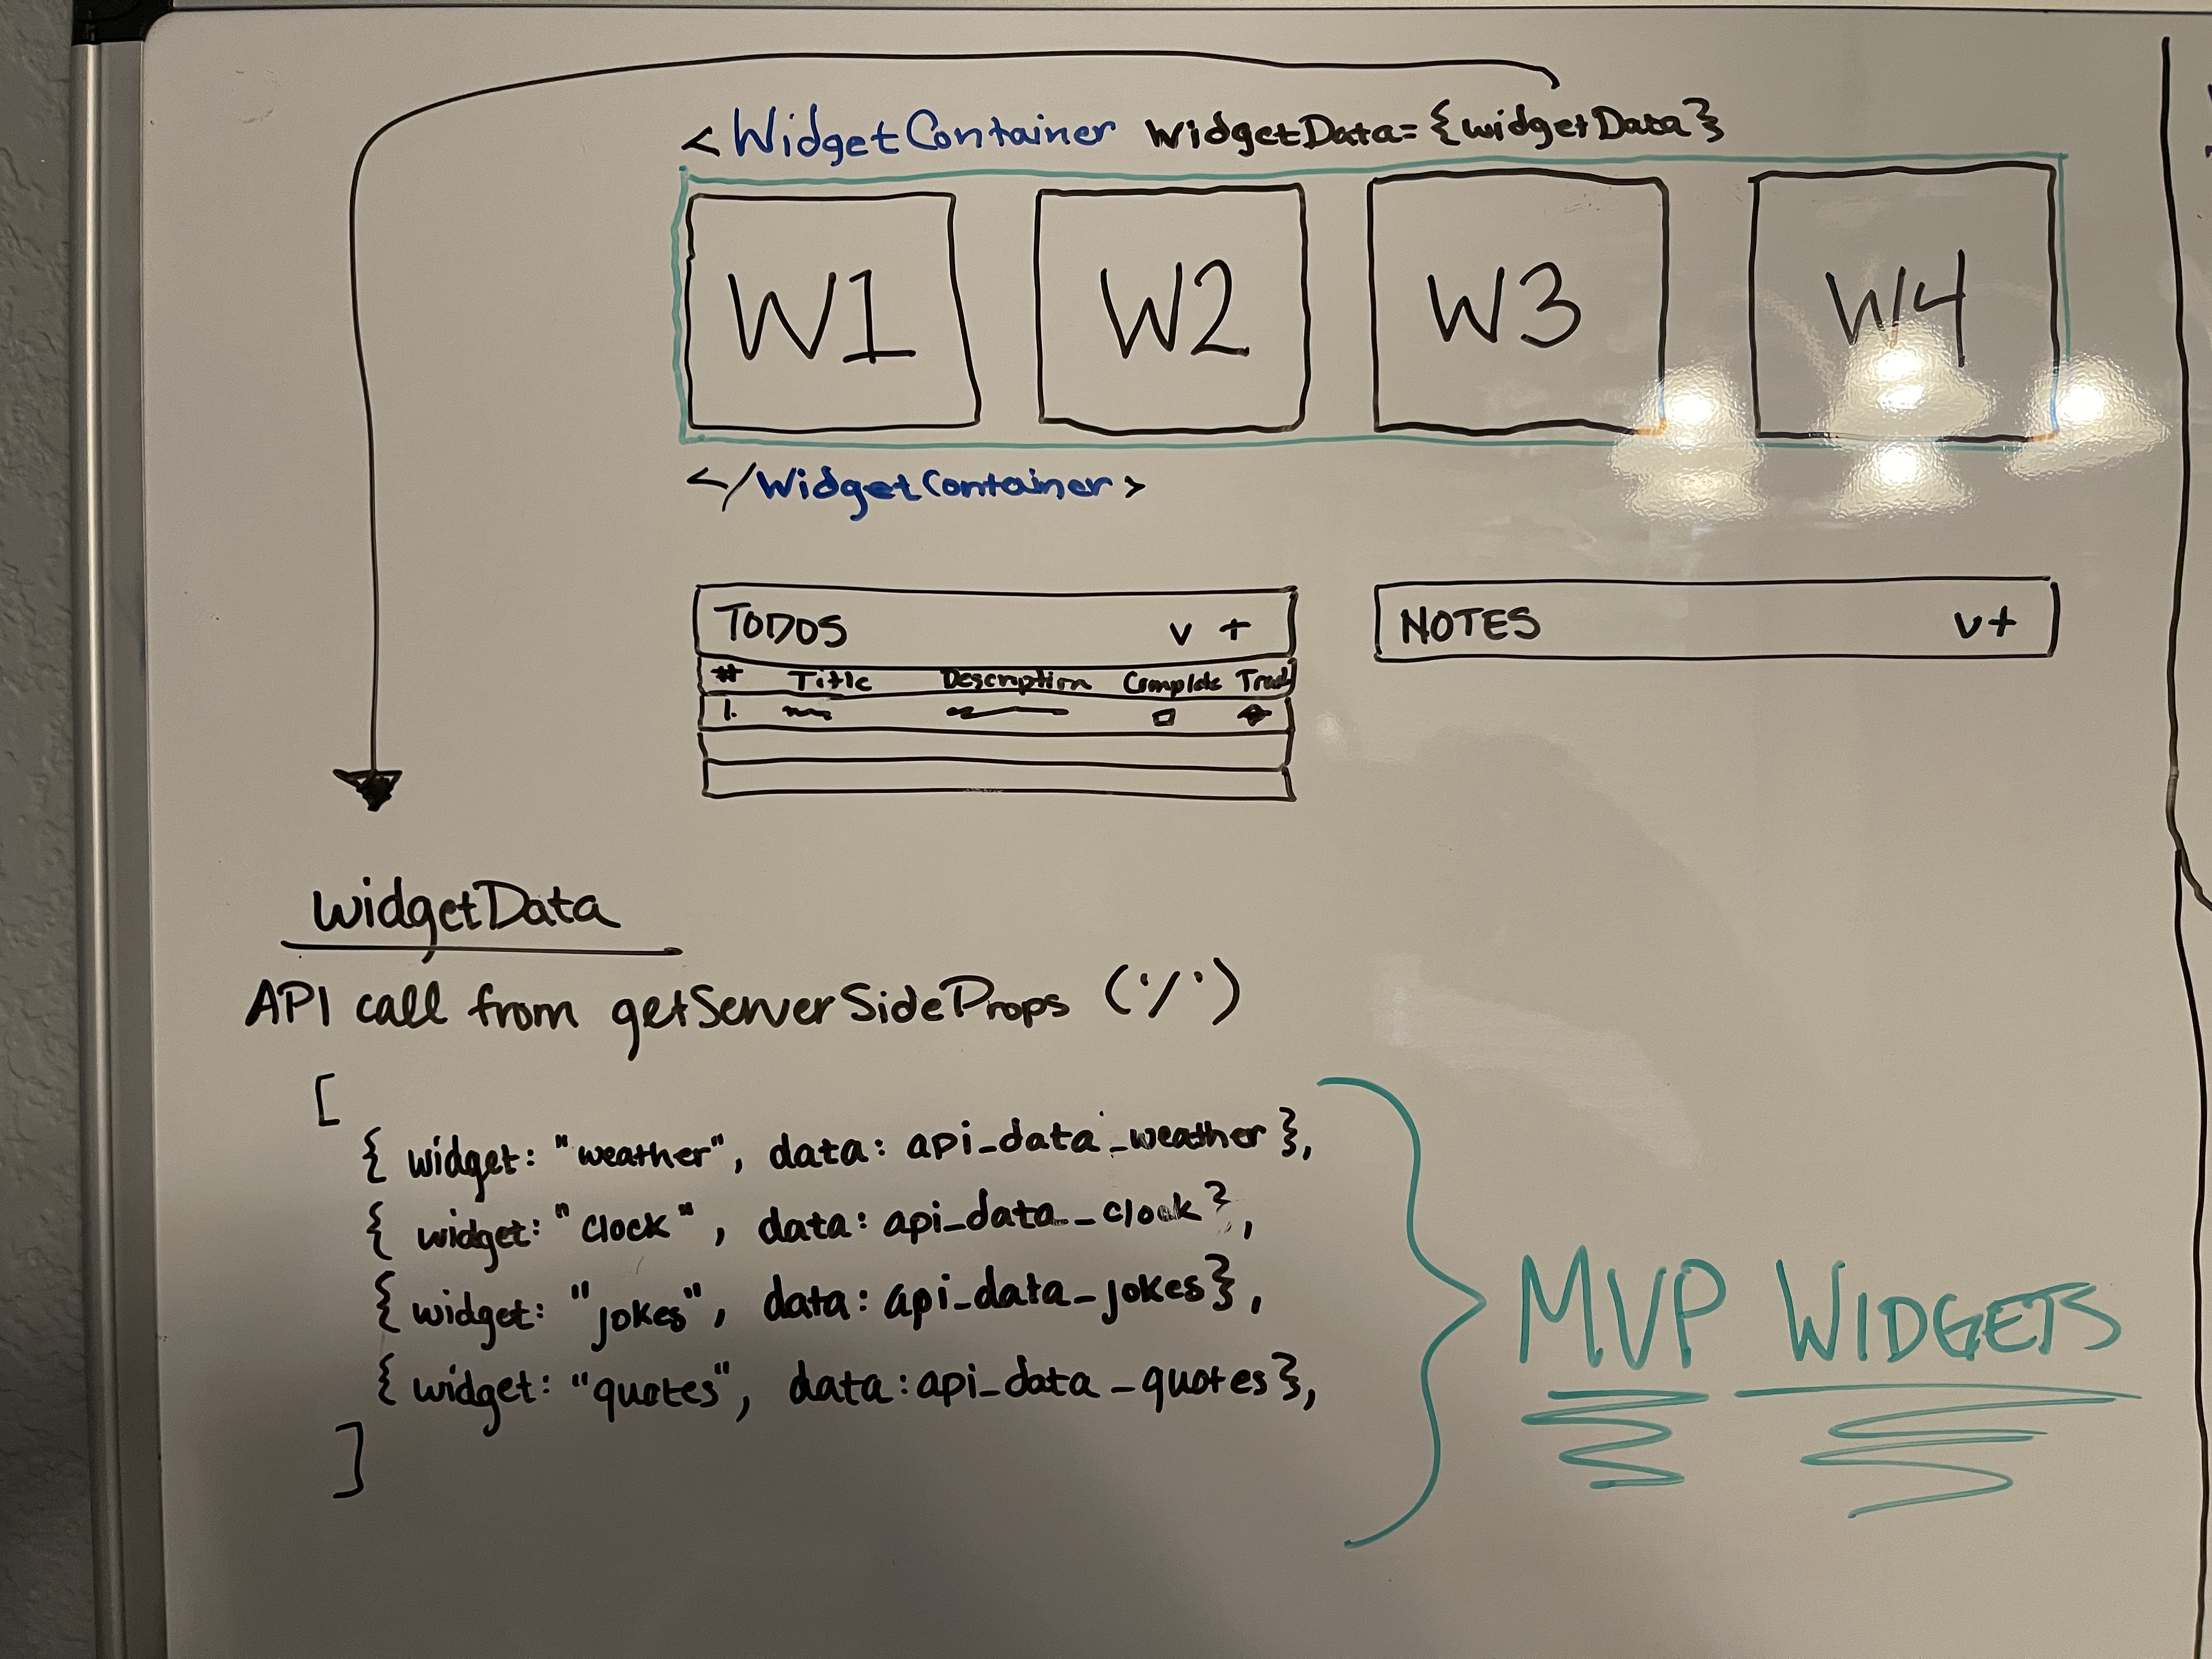 <WidgetContainer widgetData={widgetData}
W1 W2 W3 W4
</WidgetContainer>
TODOS v +
# Title Description Complete
1.
NOTES v+
widgetData
API call from getServerSideProps ('/')
[
{ widget: "weather", data: api_data_weather },
{ widget: "clock", data: api_data_clock },
{ widget: "jokes", data: api_data_jokes },
{ widget: "quotes", data: api_data_quotes },
]
MVP WIDGETS